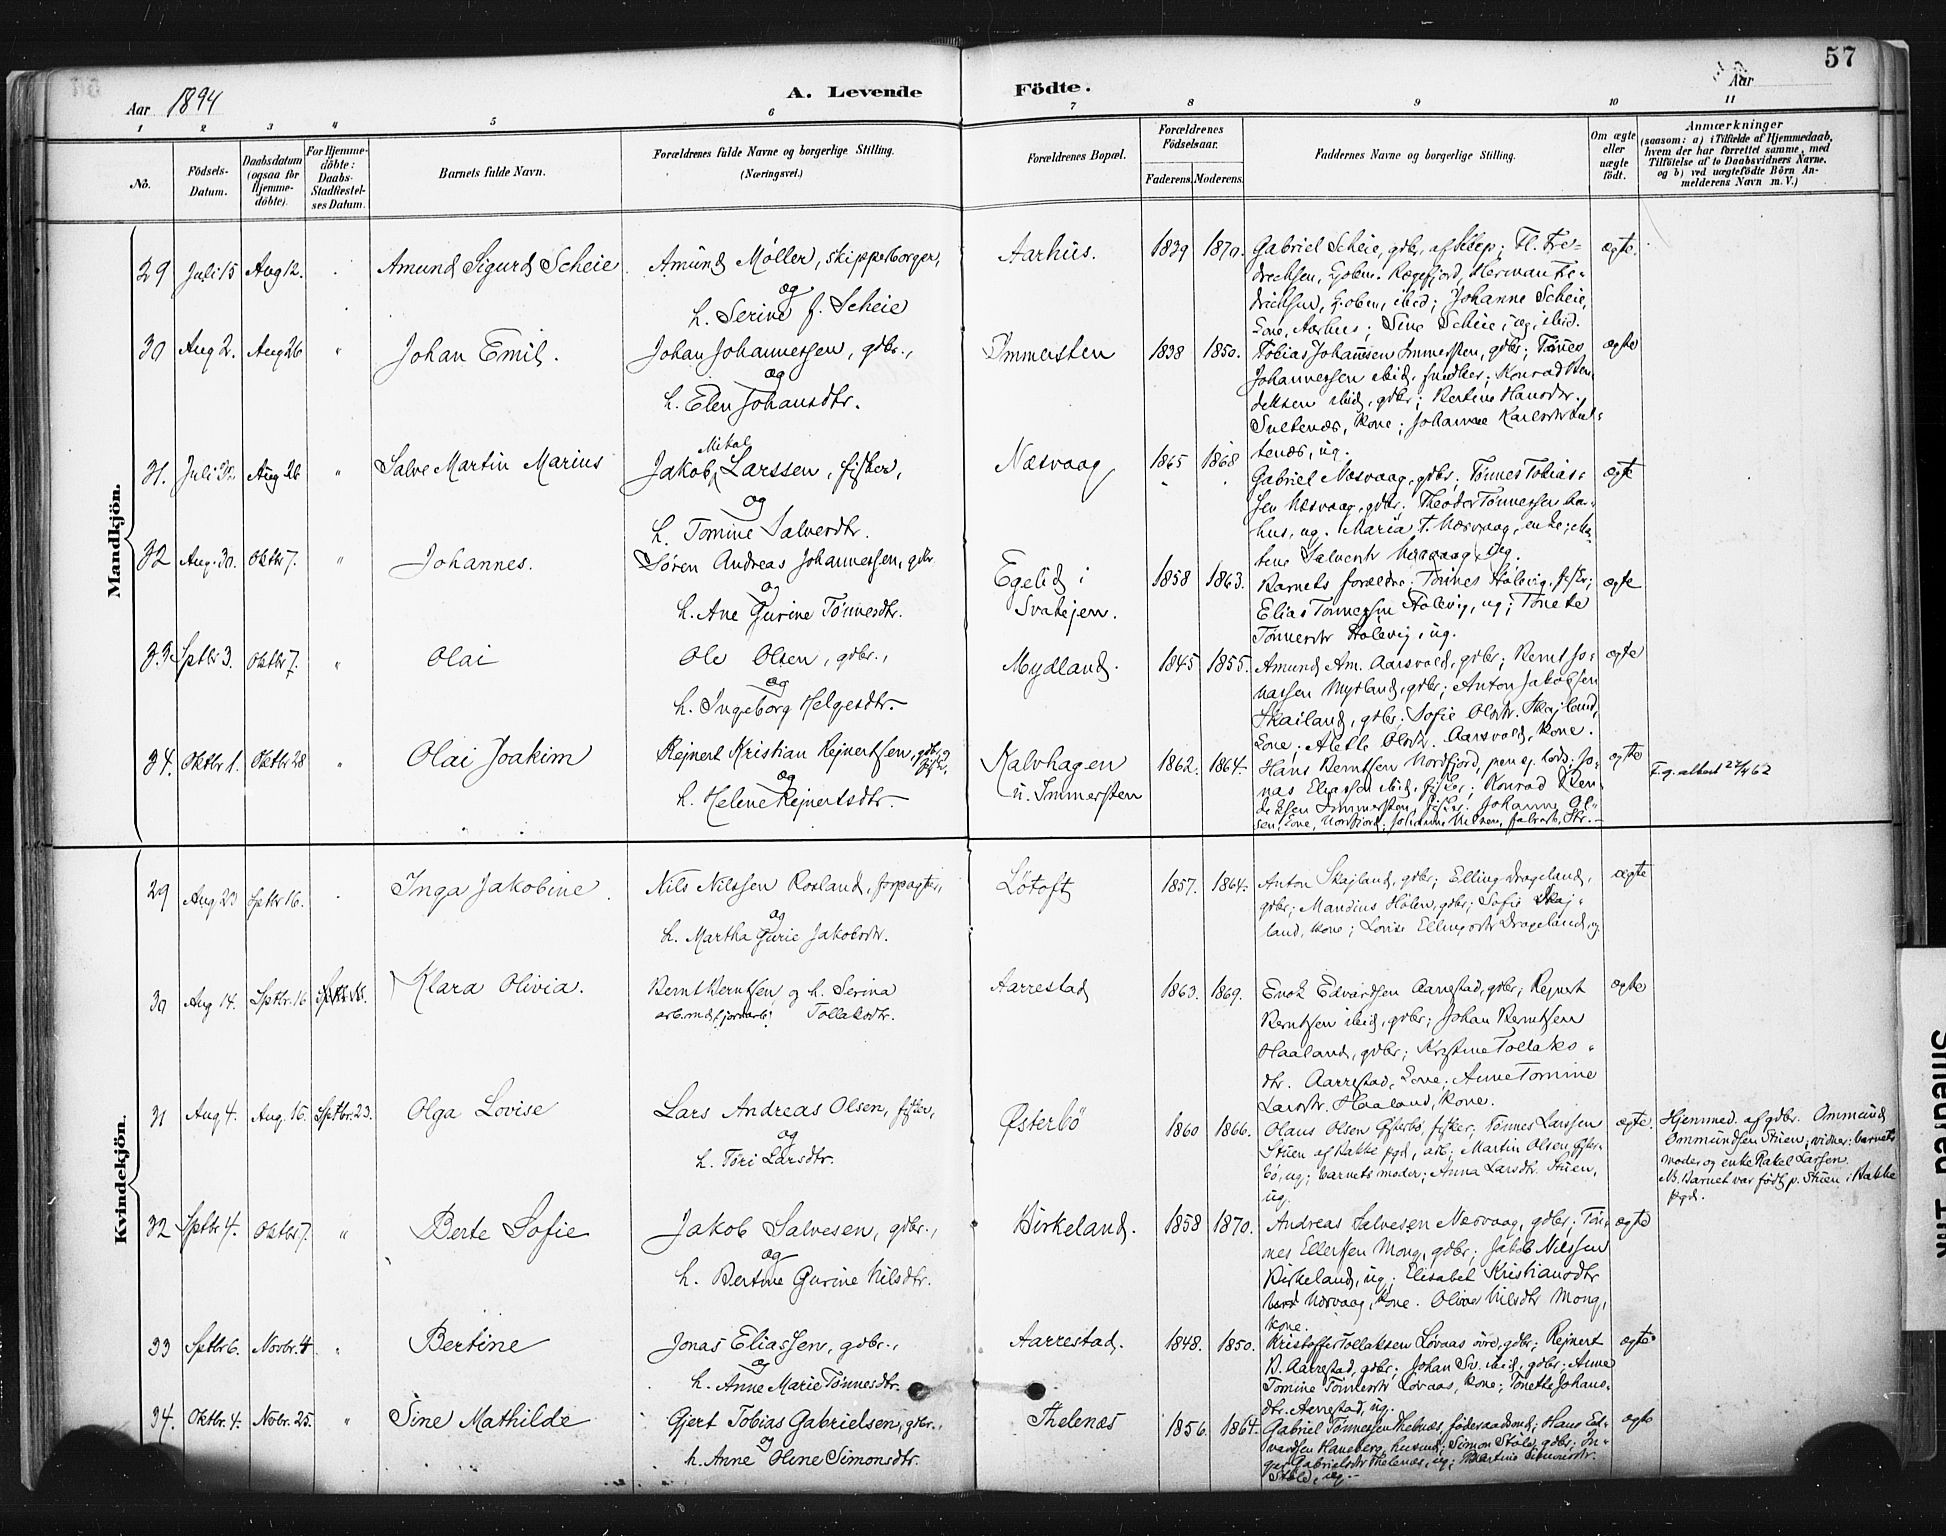 57
Aar 1894 A. Levende Födte. Aar
1 2 3 4 5 6 7 8 9 10 11
No.
Födsels-Datum.
Daabsdatum (ogsaa for Hjemme-döbte).
For Hjemme-döbte: Daabs-Stadfæstel-ses Datum.
Barnets fulde Navn.
Forældrenes fulde Navne og borgerlige Stilling. (Næringsvei.)
Forældrenes Bopæl.
Forældrenes Födselsaar.
Faderens. Moderens.
Faddernes Navne og borgerlige Stilling.
Om ægte eller uægte födt.
Anmærkninger
(saasom: a) i Tilfælde af Hjemmedaab,
hvem der har forrettet samme, med
Tilföielse af to Daabsvidners Navne,
og b) ved uægtefödte Börn An-
melderens Navn m. V.)
Mandkjön.
29 Juli 15 Aug 12. Amund Sigurd Scheie Amund Møller, skipperborger,
og
h. Serine f. Scheie
Aarhus. 1839 1870. Gabriel Scheie, gdbr. af
drechsen, Rægefjord, Herman Fre-
drichsen, ibid; Johanne Scheie,
kone, Aarhus; Sine Scheie, ug, ibid.
ægte.
30 Aug 2. Aug 26 " Johan Emil. Johan Johannessen, gdbr.,
og
h. Elen Johansdtr.
Immersten 1838 1850. Tobias Johannsen Immersten, gdbr; Tønnes
Johannessen ibid, Konrad Ben-
dektsen ibid, gdbr; Bertine Hansdtr.
Sultenæs, kone; Johanne Karlsdtr Sul-
tenæs, ug.
ægte
31. Juli 32 Aug 26 " Salve Martin Marius Jakob Mikal Larssen, fisker,
og
h. Tomine Salvesdtr.
Næsvaag 1865 1868 Gabriel Næsvaag, gdbr; Tønnes Tobias-
sen Næsvaag, gdbr; Theodor Tønnessen Aa-
hus, ug. Maria T. Næsvaag, enke; Ma-
tene Salvesdtr Næsvaag, ug.
ægte
32 Aug. 30. Oktbr 7. " Johannes. Søren Andreas Johannessen, gdbr
og
h. Ane Gurine Tønnesdtr.
Egelid i
Svaahejen.
1858 1863. Barnets forældre; Tønnes Hålevig, fisker;
Elias Tønnessen Hålevig, ug; Tonette
Tønnesdtr Hålevig, ug.
ægte
33 Sptbr 3. Oktbr 7. " Olai Ole Olsen, gdbr.,
og
h. Ingeborg Helgesdtr.
Mydland. 1845 1855. Amund Am. Aarsvold, gdbr; Bernt Jo-
nassen Mydland, gdbr; Anton Jakobsen
Skailand, gdbr; Sofie Olsdtr. Skajland,
kone; Alette Olsdtr. Aarsvold, kone.
ægte
34. Oktbr 1. Oktbr 28 " Olai Joakim Rejnert Kristian Rejnertsen, gdbr
og
h. Helene Rejnertsdtr.
Kalvhagen
u. Immersten
1862. 1864. Hans Berntsen Nordfjord, Jo-
nas Eliassen ibid, fisker; Konrad Ben-
dektsen Immersten, fisker; Johanne Ol-
sen, kone, Nordfjord;
ægte
F.g. attest 27/4 62
Kvindekjön.
29 Aug 23 Sptbr 16. Inga Jakobine. Nils Nilssen Rosland, forpagter,
og
h. Martha Gurie Jakobsdtr.
Løtoft 1857. 1864. Anton Skajland, gdbr; Elling Drageland,
gdbr; Mandius Holen, gdbr; Sofie Skaj-
land, kone; Lovise Ellingsdtr Drageland, ug
ægte
30 Aug 14. Sptbr. 16 Klara Olivia. Bernt Berntsen og h. Serina
Tollaksdtr.
Aarrestad 1863. 1869. Enok Edvardsen Aarrestad, gdbr; Rejnert
Berntsen ibid, gdbr; Johan Berntsen
Haaland, gdbr; Kristine Tollaks-
dtr. Aarrestad, kone; Anne Tomine
Larsdtr. Haaland, kone.
ægte
31 Aug 4. Aug. 16. Sptbr. 23. Olga Lovise Lars Andreas Olsen, fisker,
og
h. Tori Larsdtr.
Østerbö 1860 1866. Olaus Olsen Østerbö, fisker; Tønnes Larssen
Stuen af Bakke pgd, arb; Martin Olsen Øster-
bö, ug; barnets moder; Anna Larsdtr. Stuen,
ug.
ægte.
Hjemmed. af gdbr. Ommund
Ommundsen Stuen; vidner: barnets
moder og enke Rakel Larsen.
NB. Barnet var født p. Stuen i Bakke
pgd.
32 Sptbr 4. Oktbr 7. " Berte Sofie Jakob Salvesen, gdbr.,
og
h. Bertine Gurine Nilsdtr.
Birkeland. 1858 1870. Andreas Salvesen Næsvaag, gdbr; Tøn-
nes Ellertsen Mong, gdbr; Jakob Nilssen
Birkeland, ug; Elisabet Kristiansdtr
Næsvaag, kone. Oline Nilsdtr Mong,
kone.
ægte
33 Sptbr 6. Novbr. 4 " Bertine Jonas Eliassen, gdbr.,
og
h. Anne Marie Tønnesdtr.
Aarrestad. 1848. 1850. Kristoffer Tollaksen Lovaas, gdbr; Rejnert
B. Aarrestad, gdbr; Johan Sv. ibid, gdbr; Anne
Tomine Tønnesdtr Lovaas, kone; Tonette Johans-
dtr. Aarrestad, ug.
ægte
34. Oktbr. 4. Novbr. 25. " Sine Mathilde Gjert Tobias Gabrielsen, gdbr.,
og
h. Anne Oline Simonsdtr.
Thelenæs 1856. 1864. Gabriel Tønnessen Thelenæs, føderaadsmd; Hans Ed-
vardsen Haneberg, husmd; Simon Støle, gdbr; In-
ger Gabrielsdtr Thelenæs, ug; Martine Simonsdtr.
Støle, ug.
ægte